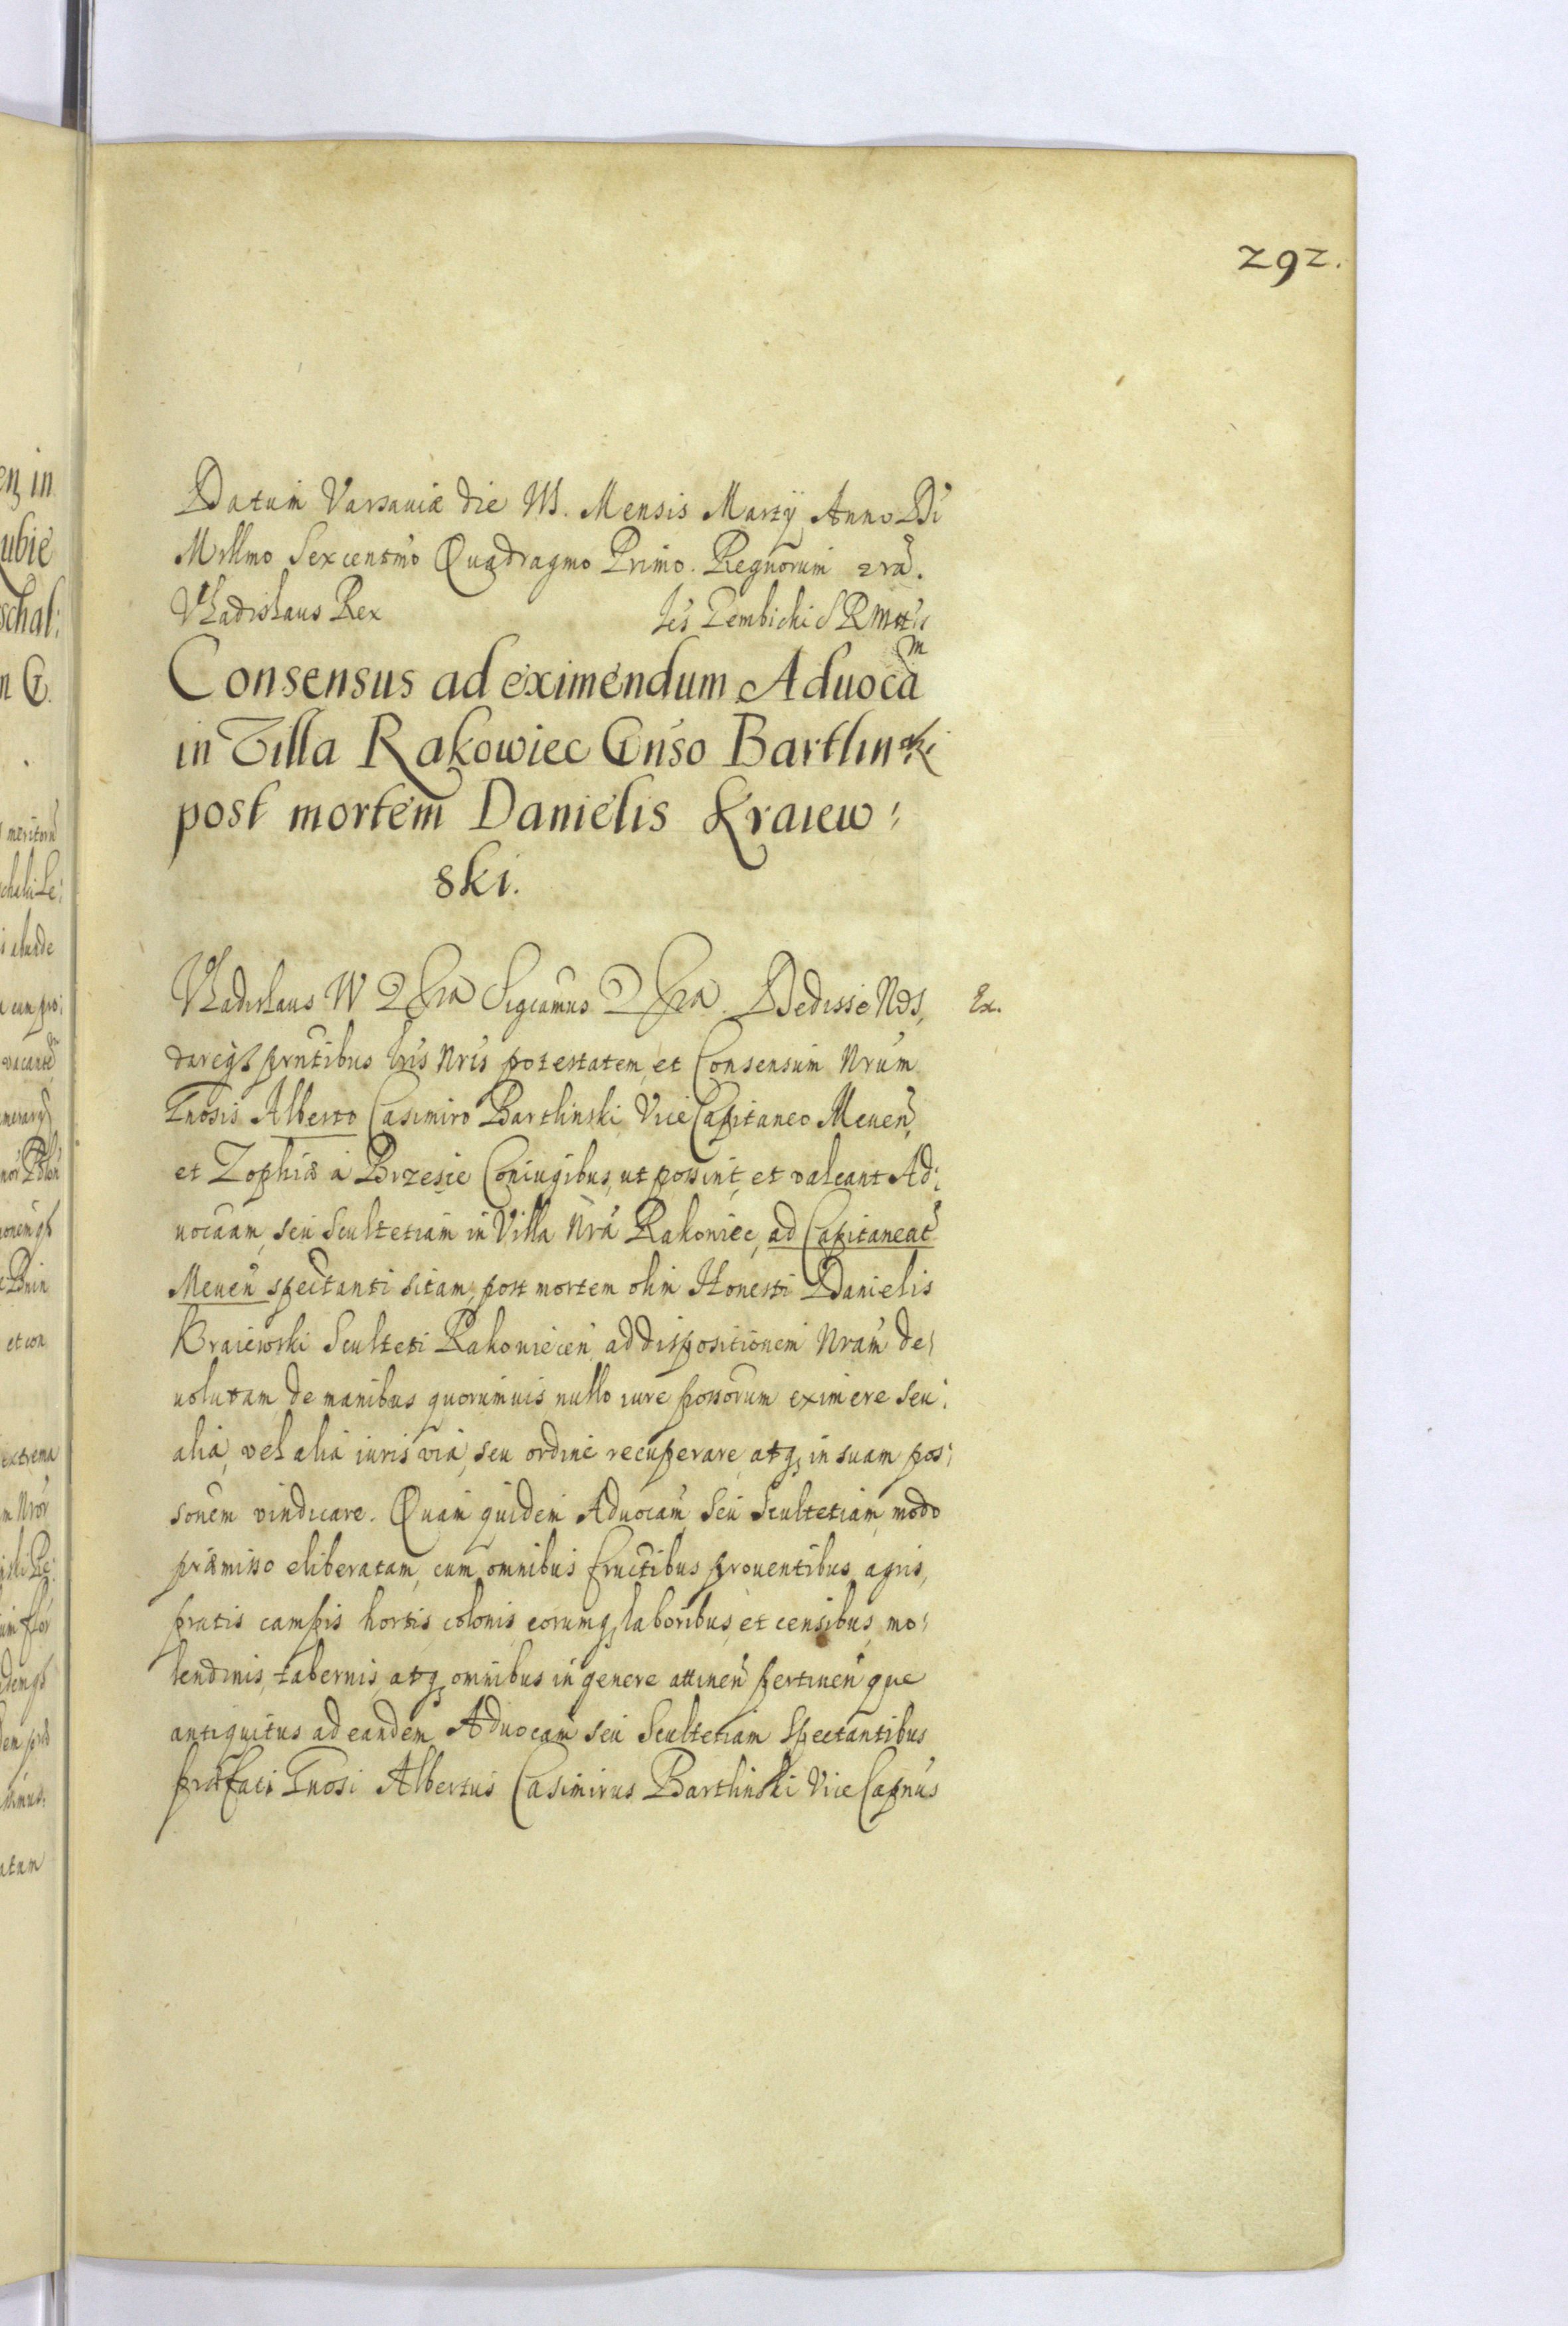 292.
Datum Varsauiæ die VII. Mensis Martij Anno Dñi
Millmo Sexcentmo Quadragmo Primo. Regnorum
Vladislaus Rex
Consensus ad eximendum Aduocãm
in Villa Rakowiec Gnso Bartlinski
post mortem Danielis Kraiew:
ski.
Vladislaus IV Significamus Dedisse Nos, Ex.
dareq3 prntibus lris Nris potestatem, et Consensum Nrum
Gnosis Alberto Casimiro Bartlinski Vice Capitaneo Meuen,
et Zophiæ à Brzesie Coniugibus, ut possint, et valeant Ad:
uocãam, seu Scultetiam in Villa Nrã Rakoniec, ad Capitaneat
Meuen spectanti sitam, post mortem olim Honesti Danielis
Kraiewski Sculteti Rakoniecen ad dispositionem Nram de:
uolutam, de manibus quorumuis nullo iure possorum eximere seu:
aliã, vel aliã iuris viã, seu ordine recuperare, atq3 in suam pos:
sonem vindicare. Quam quidem Aduocãm, seu Scultetiam, modo
præmisso eliberatam, cum omnibus fructibus prouentibus, agris,
pratis campis hortis, colonis, eorumq3 laboribus, et censibus, mo:
lendinis, tabernis, atq3 omnibus in genere attinen pertinen que
antiquitus ad eandem Aduocam seu Scultetiam Spectantibus
præfati Gnosi Albertus Casimirus Bartlinski Vice Capnus